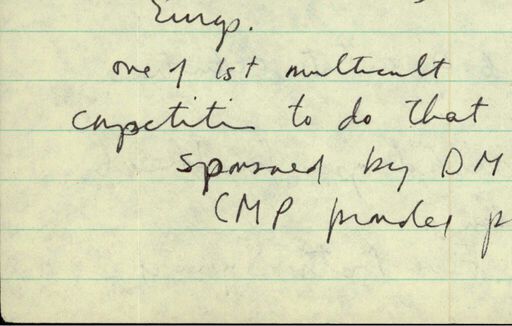 Eurgs.
one of 1st multicult
competition to do that
sponsored by DM
CMP provides p